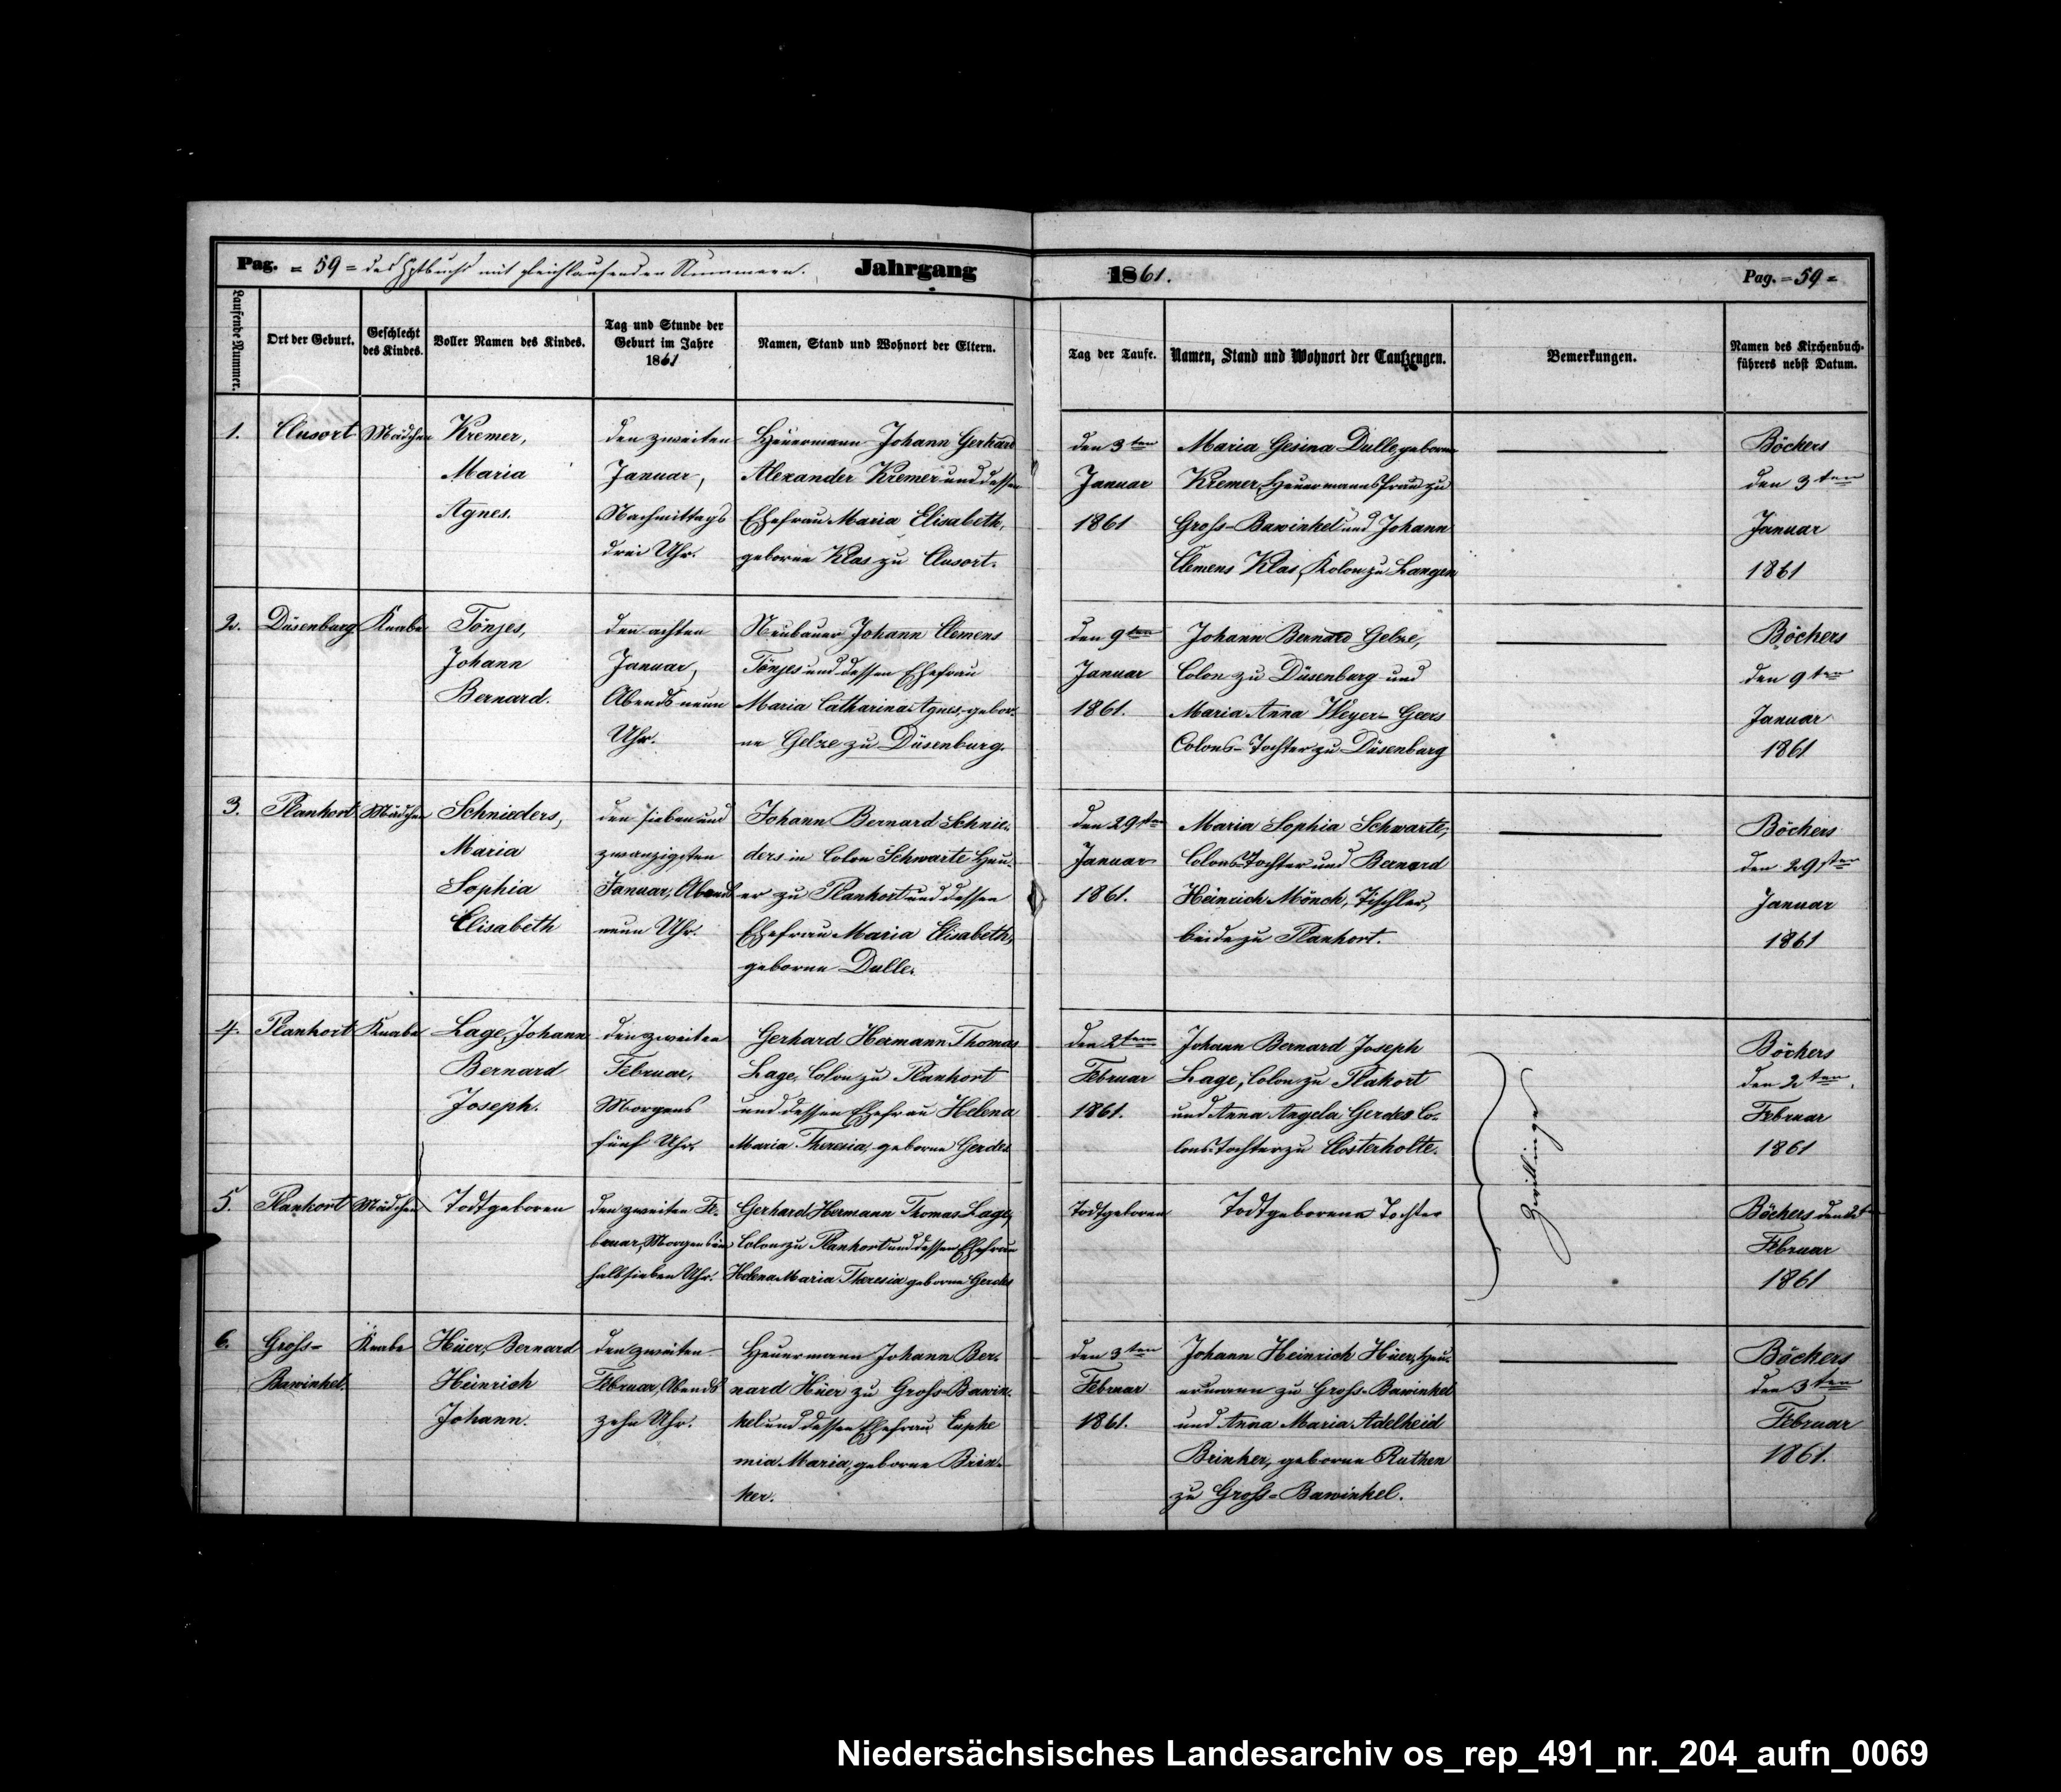 Pag. = 59 = des Hptbuchs mit gleichlaufenden Nummern. Jahrgang 1861. Pag. = 59 =
Laufende Nummer.
Ort der Geburt.
Geschlecht
des Kindes.
Voller Namen des Kindes.
Tag und Stunde der
Geburt im Jahre
1861
Namen, Stand und Wohnort der Eltern.
Tag der Taufe.
Namen, Stand und Wohnort der Taufzeugen.
Bemerkungen.
Namen des Kirchenbuch-
führers nebst Datum.
1.
Clusort
Mädchen
Kremer,
Maria
Agnes.
den zweiten
Januar,
Nachmittags
drei Uhr.
Heuermann Johann Gerhard
Alexander Kremer und dessen
Ehefrau Maria Elisabeth,
geborne Klas zu Clusort.
den 3ten
Januar
1861
Maria Gesina Dulle, geborne
Kremer, Heuermannsfrau zu
Groß-Bawinkel und Johann
Clemens Klas, Kolon zu Langen
Böckers
den 3ten
Januar
1861
2.
Düsenburg
Knabe
Tönjes,
Johann
Bernard.
den achten
Januar,
Abends neun
Uhr.
Neubauer Johann Clemens
Tönjes und dessen Ehefrau
Maria Catharina Agnes, gebor-
ne Gelze zu Düsenburg.
den 9ten
Januar
1861.
Johann Bernard Gelze,
Colon zu Düsenburg und
Maria Anna Weyer-Geers
Colons-Tochter zu Düsenburg
Böckers
den 9ten
Januar
1861
3.
Plankort
Mädchen
Schnieders,
Maria
Sophia
Elisabeth
den sieben und
zwanzigsten
Januar, Abends
neun Uhr.
Johann Bernard Schnie-
ders in Colon Schwarte Heu-
er zu Plankort und dessen
Ehefrau Maria Elisabeth,
geborne Dulle.
den 29sten
Januar
1861.
Maria Sophia Schwarte,
Colons-Tochter und Bernard
Heinrich Mönch, Tischler,
beide zu Plankort.
Böckers
den 29sten
Januar
1861
4.
Plankort
Knabe
Lage, Johann
Bernard
Joseph.
den zweiten
Februar,
Morgens
fünf Uhr.
Gerhard Hermann Thomas
Lage, Colon zu Plankort
und dessen Ehefrau Helena
Maria Theresia, geborne Gerdes
den 2ten
Februar
1861.
Johann Bernard Joseph
Lage, Colon zu Plakort
und Anna Angela Gerdes Co-
lons-Tochter zu Closterholte.
Zwillinge
Böckers
den 2ten.
Februar
1861
5.
Plankort
Mädchen
Todtgeboren
den zweiten Fe-
bruar, Morgens um
halb sieben Uhr.
Gerhard Hermann Thomas Lage,
Colon zu Plankort und dessen Ehefrau
Helena Maria Theresia geborne Gerdes
Todtgeboren
Todtgeborene Tochter
Böckers den 2t
Februar
1861
6.
Groß-
Bawinkel.
Knabe
Hüer, Bernard
Heinrich
Johann.
den zweiten
Februar, Abends
zehn Uhr.
Heuermann Johann Ber-
nard Hüer zu Groß-Bawin-
kel und dessen Ehefrau Euphe
mia Maria, geborne Brin-
ker.
den 3ten
Februar
1861.
Johann Heinrich Hüer, Heu-
ermann zu Groß-Bawinkel
und Anna Maria Adelheid
Brinker, geborne Ruthen
zu Groß-Bawinkel.
Böckers
den 3ten
Februar
1861.
Niedersächsisches Landesarchiv os_rep_491_nr._204_aufn_0069